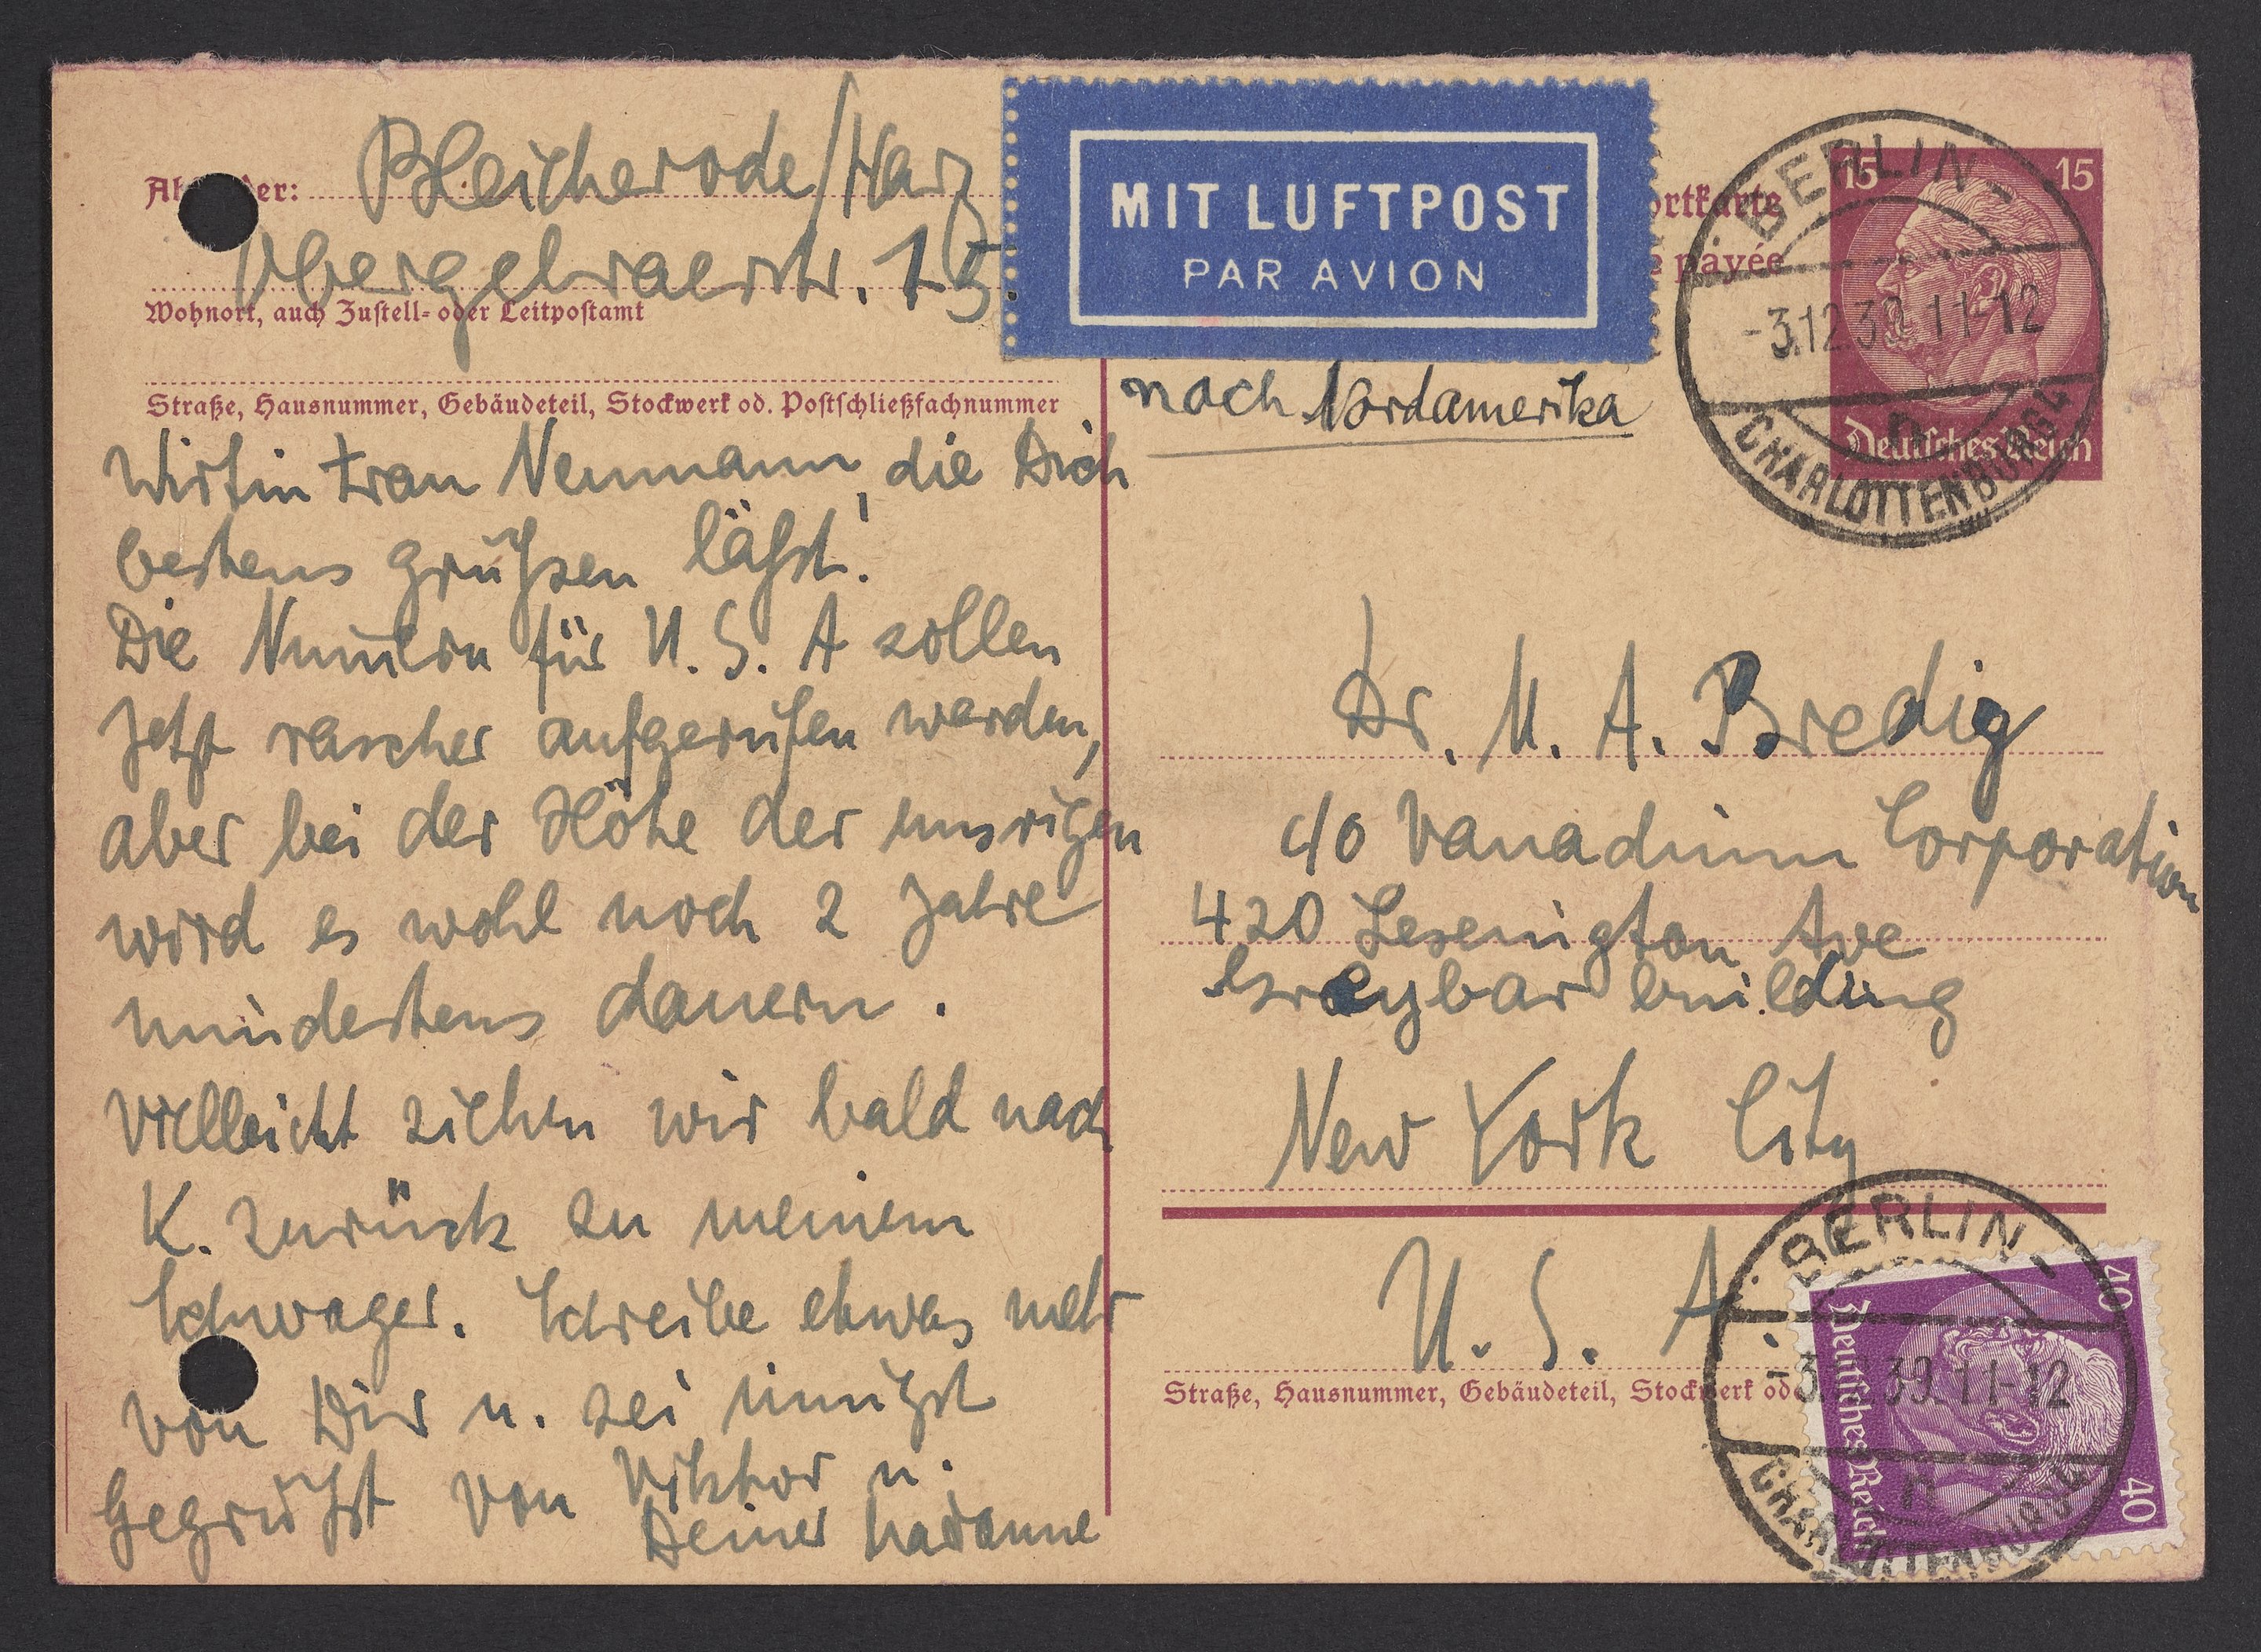 Bleicherode/Harz
Obergebraerstr. 15.
Wohnort, auch Zustell- oder Leitpostamt
Straße, Hausnummer, Gebäudeteil, Stockwerk od. Postschließfachnummer
Wirtin Frau Neumann, die Dich
bestens grüßsen läßst!
Die Nummern für U. S. A sollen
jetzt rascher aufgerufen werden,
aber bei der Höhe der unsrigen
wird es wohl noch 2 Jahre
mindestens dauern.
Vielleicht ziehen wir bald nach
K. zurück zu meinem
Schwager. Schreibe etwas mehr
von Dir u. sei innigst
gegrüßt von Viktor u.
Deiner
MIT LUFTPOST
PAR AVION
ortkarte
payée
15 15
Deutsches Reich
BERLIN-
-3.12.39.11-12
n
CHARLOTTENBURG 4
nach Nordamerika
Dr. M. A. Bredig
c/o Vanadium Corporation
420 Lesenigton Ave
building
New York City
U. S. A.
Straße, Hausnummer, Gebäudeteil, Stockwerk od
40 40
Deutsches Reich
BERLIN-
-3. 39.11-12
n
CHARLOTTENBURG